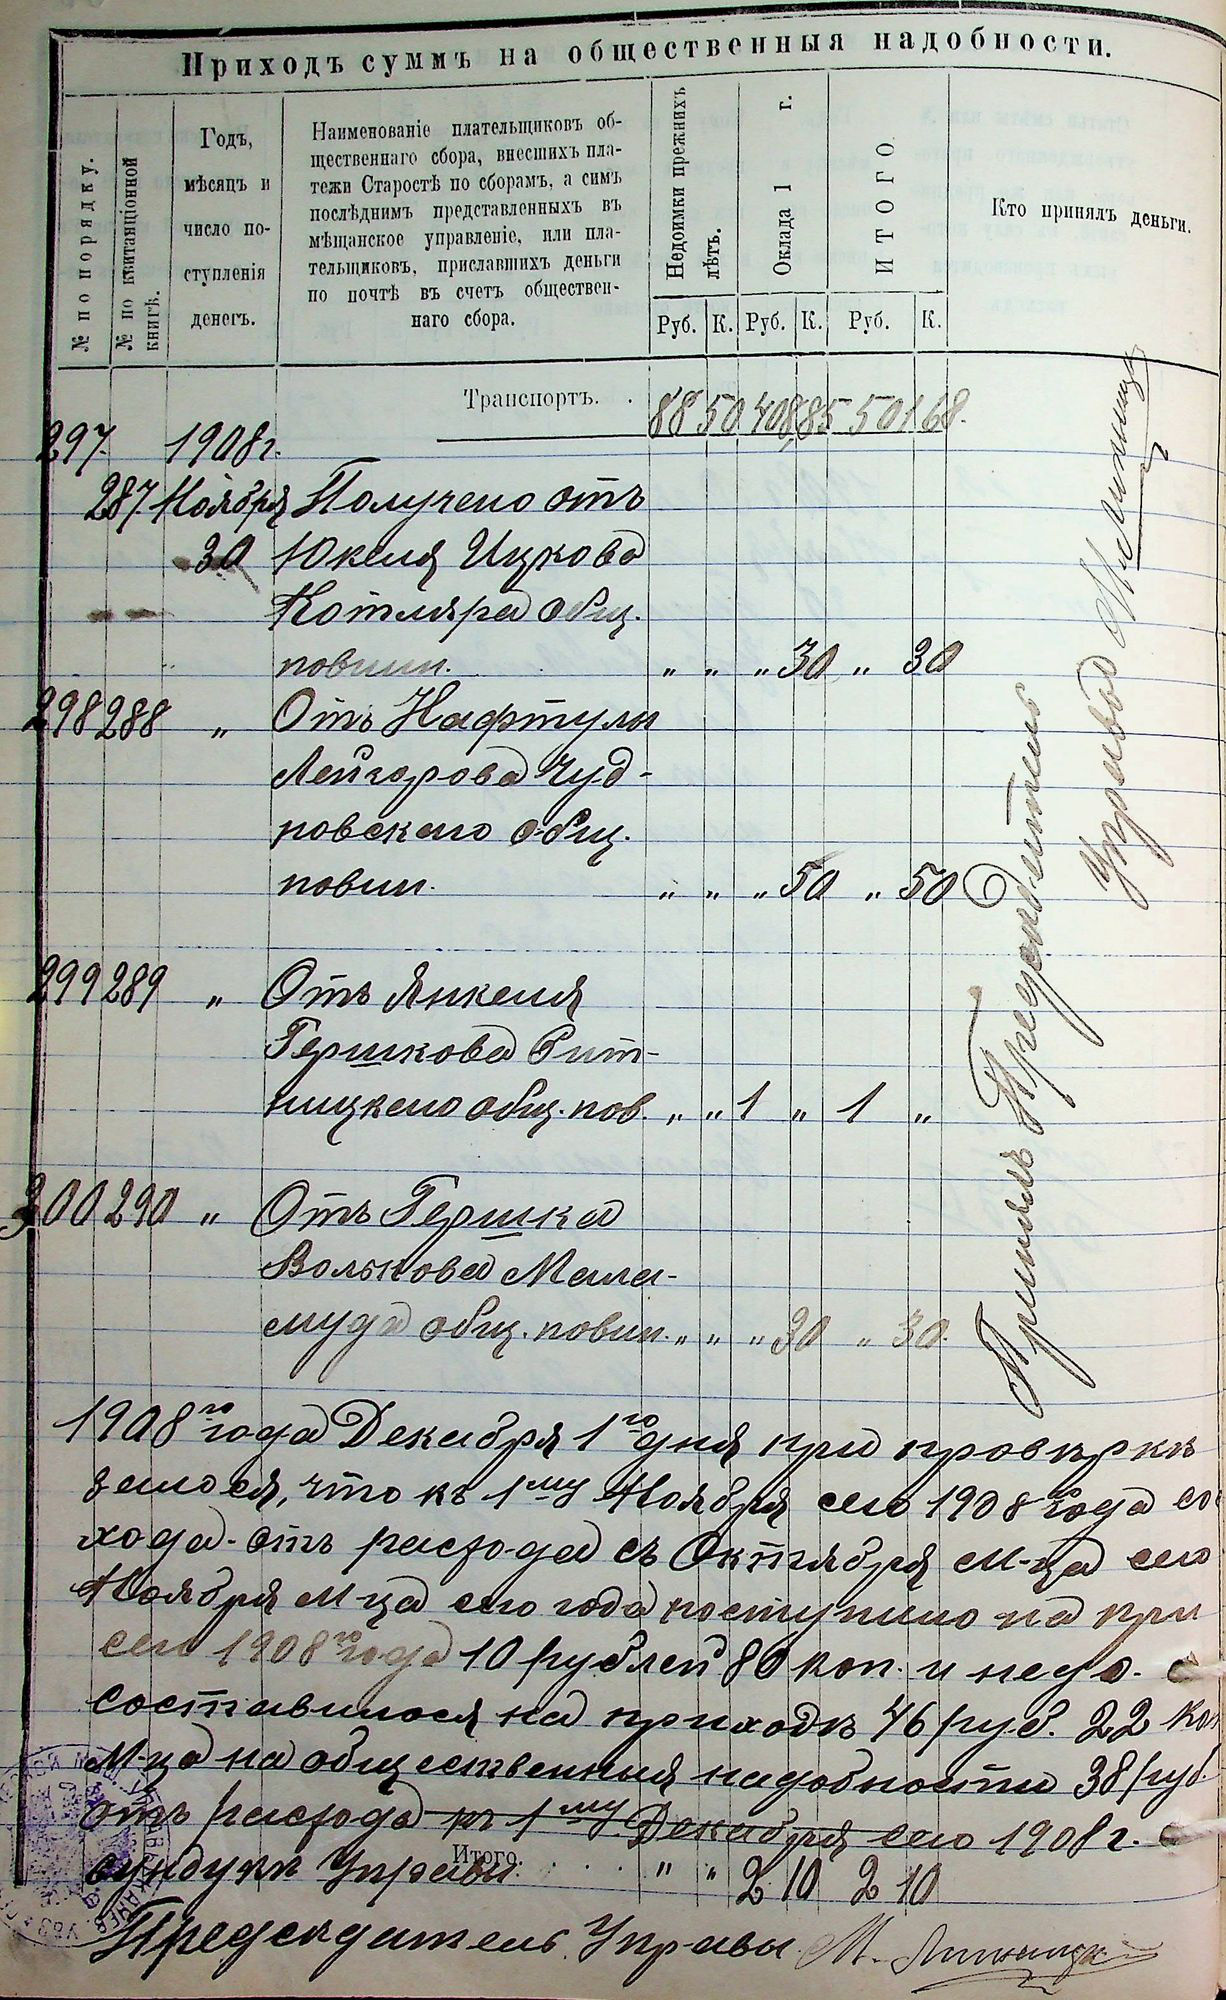 Приходъ суммъ на общественныя надобности.
№ по порядку.
№ по квитанціонной книгѣ.
Годъ,
мѣсяцъ и
число по-
ступленія
денегъ.
Наименованіе плательщиковъ об-
щественнаго сбора, внесшихъ пла-
тежи Старостѣ по сборамъ, а симъ
послѣднимъ представленныхъ въ
мѣщанское управленіе, или пла-
тельщиковъ, приславшихъ деньги
по почтѣ въ счетъ обществен-
наго сбора.
Недоимки прежнихъ
лѣтъ.
Оклада 1 г.
ИТОГО
Кто принялъ деньги.
Руб. К. Руб. К. Руб. К.
Транспортъ. . 88 50 408 85 501 68.
297. 1908 г.
287 Ноября Получено отъ
30 Юкеля Ицкова
Котляра общ.
повин. „ „ „ 30 „ 30
298 288 „ Отъ Нафтулы
Лейзорова Чуд-
новскаго общ.
повин. „ „ „ 50 „ 50
299 289 „ Отъ Янкеля
Гершкова
ницкаго общ. пов. „ „ 1 „ 1 „
300 290 „ Отъ Гершка
Волькова Мала-
муда общ. повин. „ „ „ 30 „ 30.
Принялъ Предсѣдатель
Управы
1908го года Декабря 1го дня при провѣркѣ
залося, что къ 1му Ноября сего 1908 года
хода отъ расхода съ Октября м-ца сего
Ноября м-ца сего года поступило на при
сего 1908го года 10 рублей 80 коп. и недо-
составилося на приходѣ 46 руб. 22 коп
м-ца на общественныя надобности 38 руб
отъ расхода къ 1му Декабря сего 1908 г.
сундукѣ Управы
Итого. . . . „ „ 2 10 2 10
Предсѣдатель Управы М.